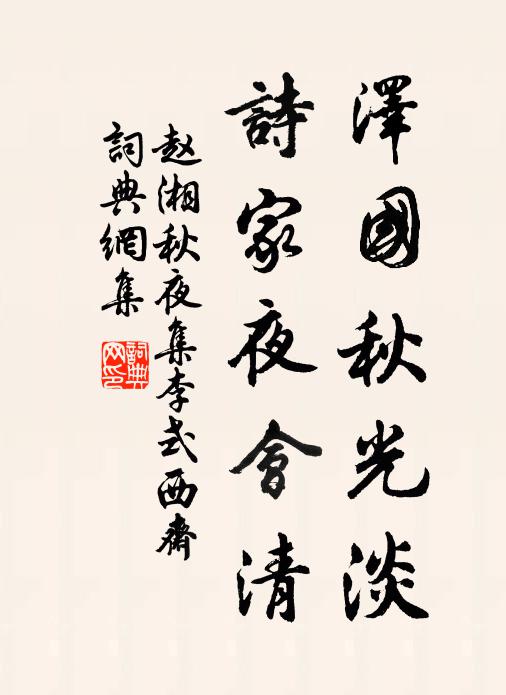 澤國秋光淡
詩家夜會清
赵湘秋夜集李式西齋
詞典網集
詞典网印